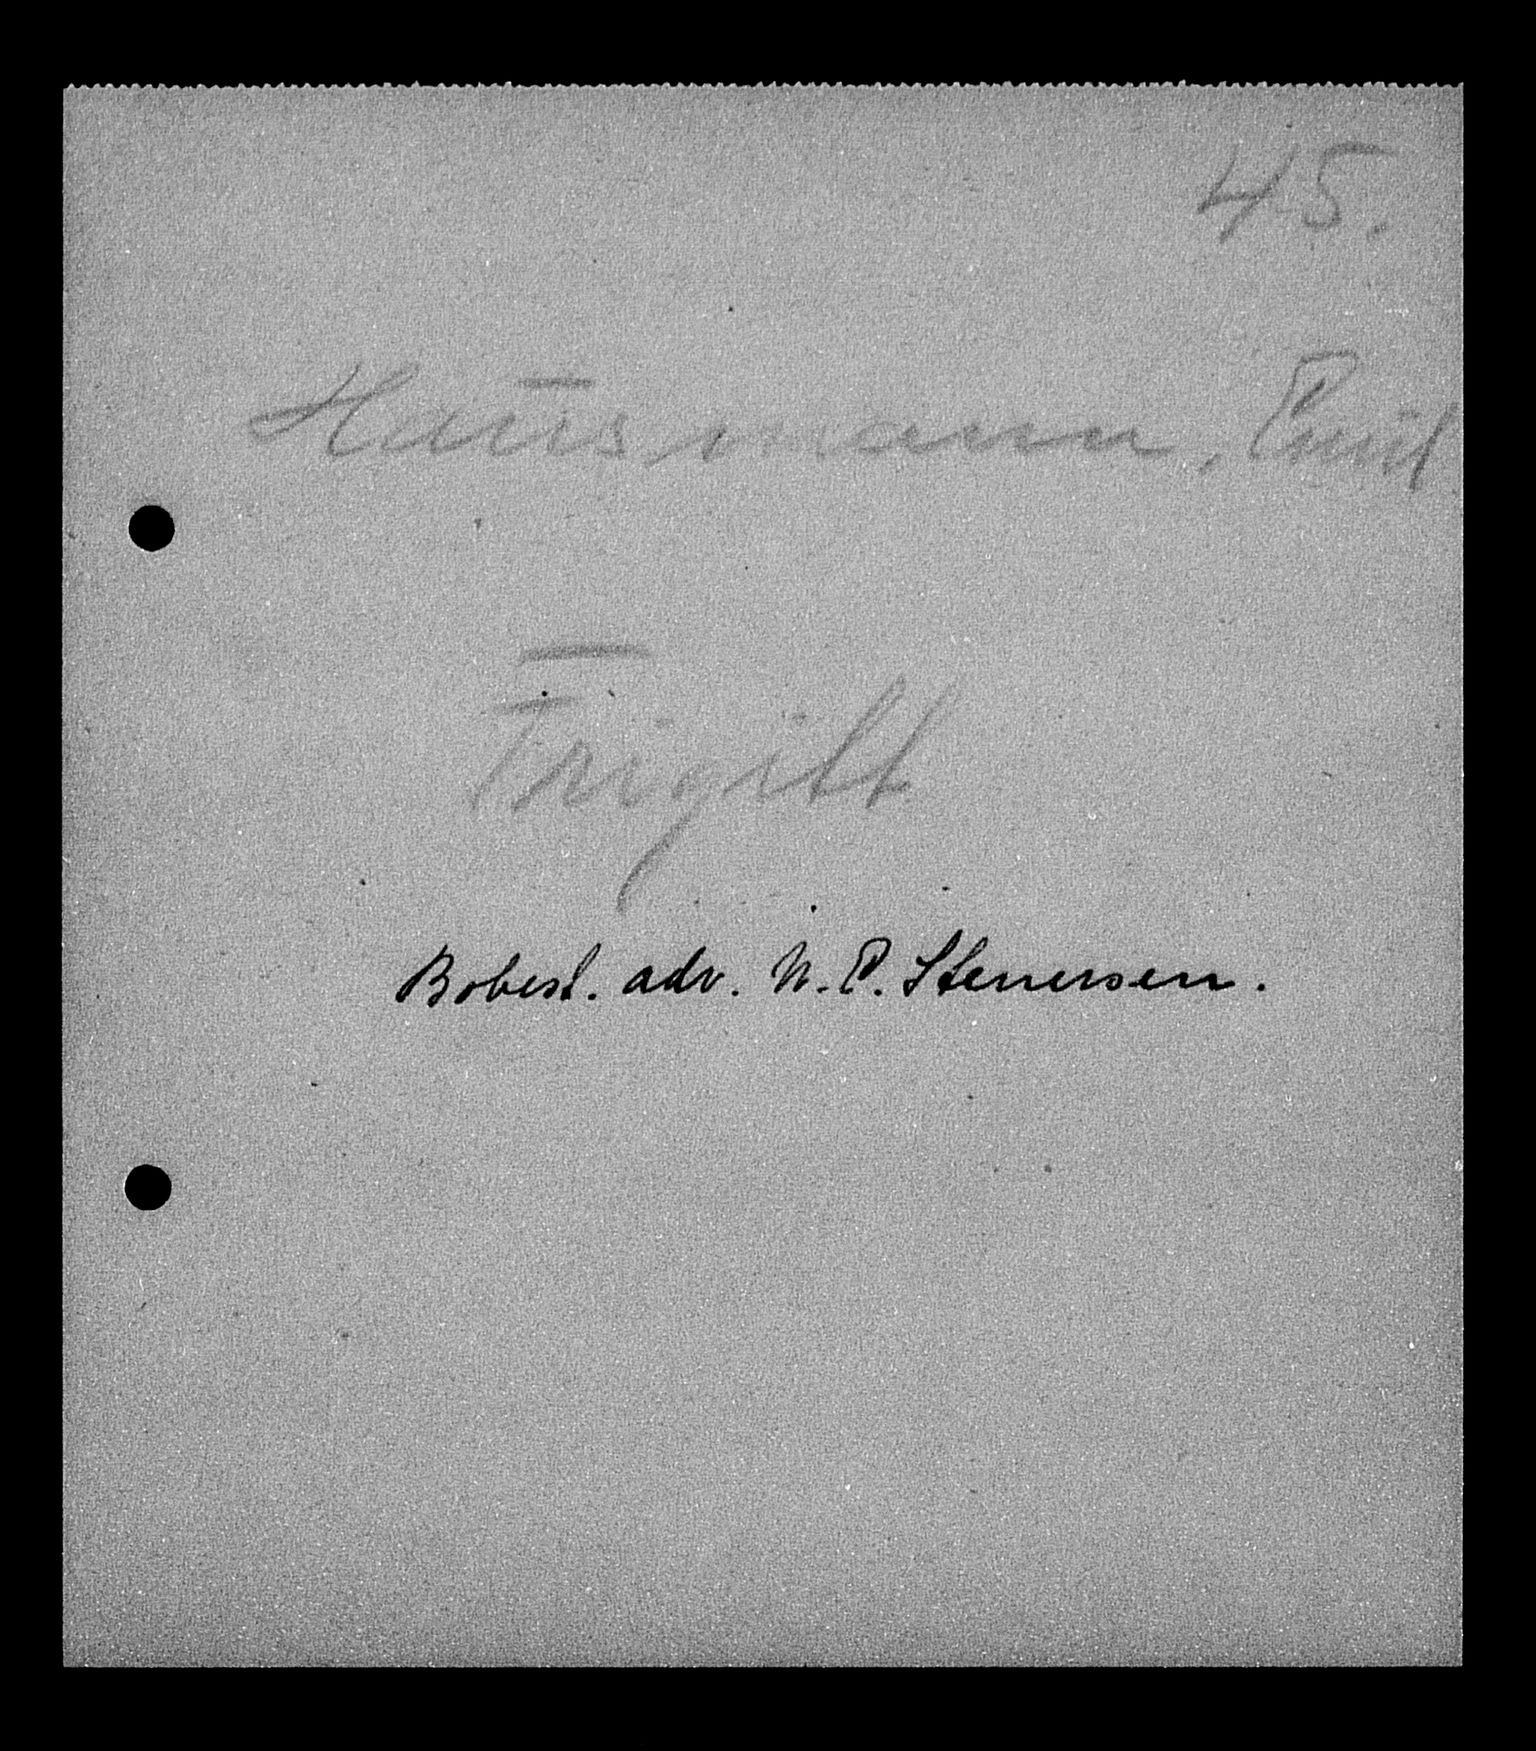 45.
Hausmann, Emil
Frigitt
Bobest. adv. N. P. Stenersen.